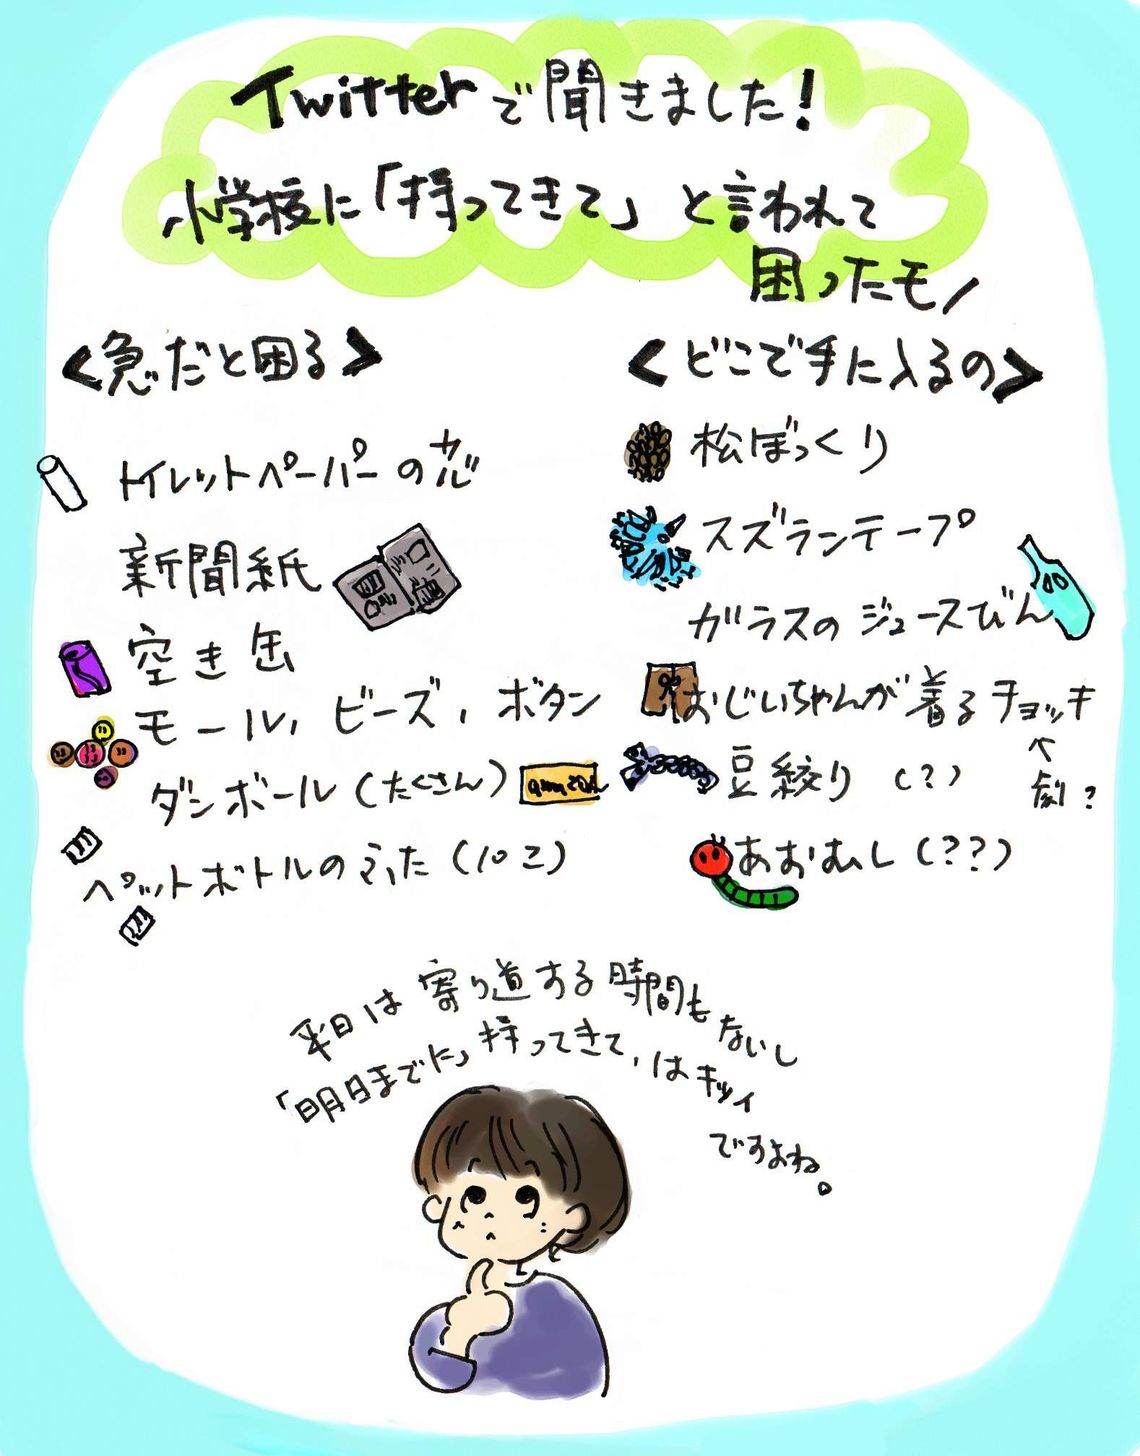 Twitterで聞きました!
小学校に「持ってきて」と言われて
困ったモノ
<急だと困る>
トイレットペーパーの芯
新聞紙
空き缶
モール、ビーズ、ボタン
ダンボール(たくさん)
amazon
ペットボトルのふた(10こ)
<どこで手に入るの>
松ぼっくり
スズランテープ
ガラスのジュースびん
おじいちゃんが着るチョッキ
劇?
豆絞り(?)
あおむし(??)
平日は寄り道する時間もないし
「明日までに」持ってきて、はキツイ
ですよね。